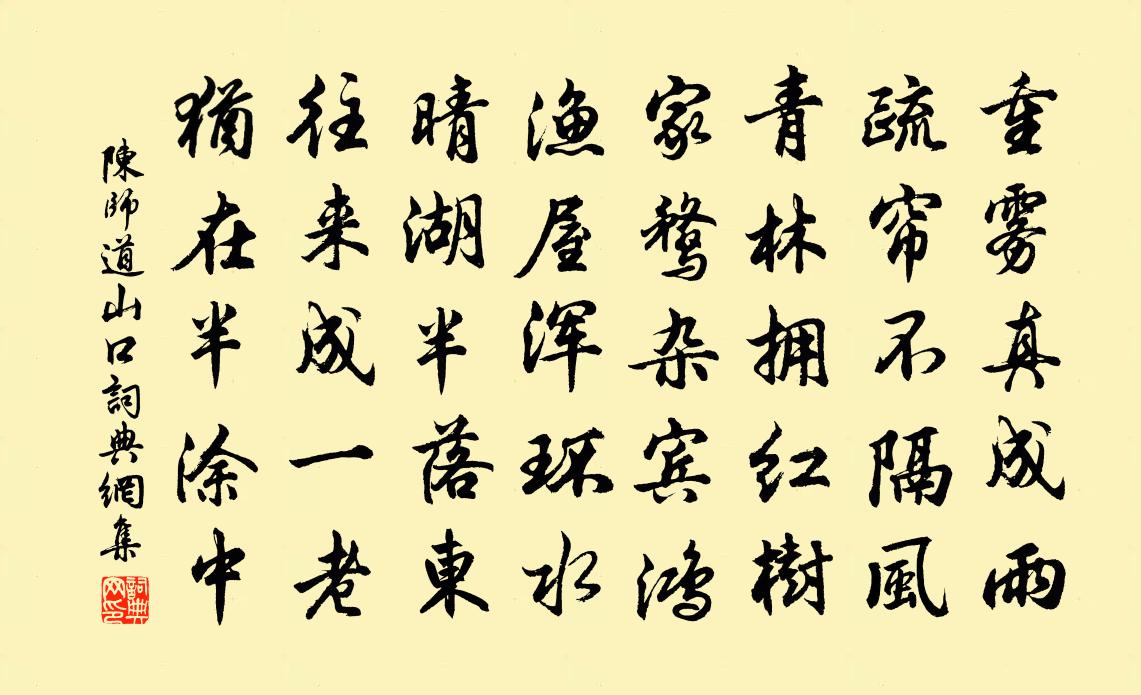 重雾真成雨
疏帘不隔風
青林拥红樹
家鹜杂宾鸿
渔屋浑环水
晴湖半落東
往来成一老
猶在半涂中
陳師道山口詞典網集
詞典网印